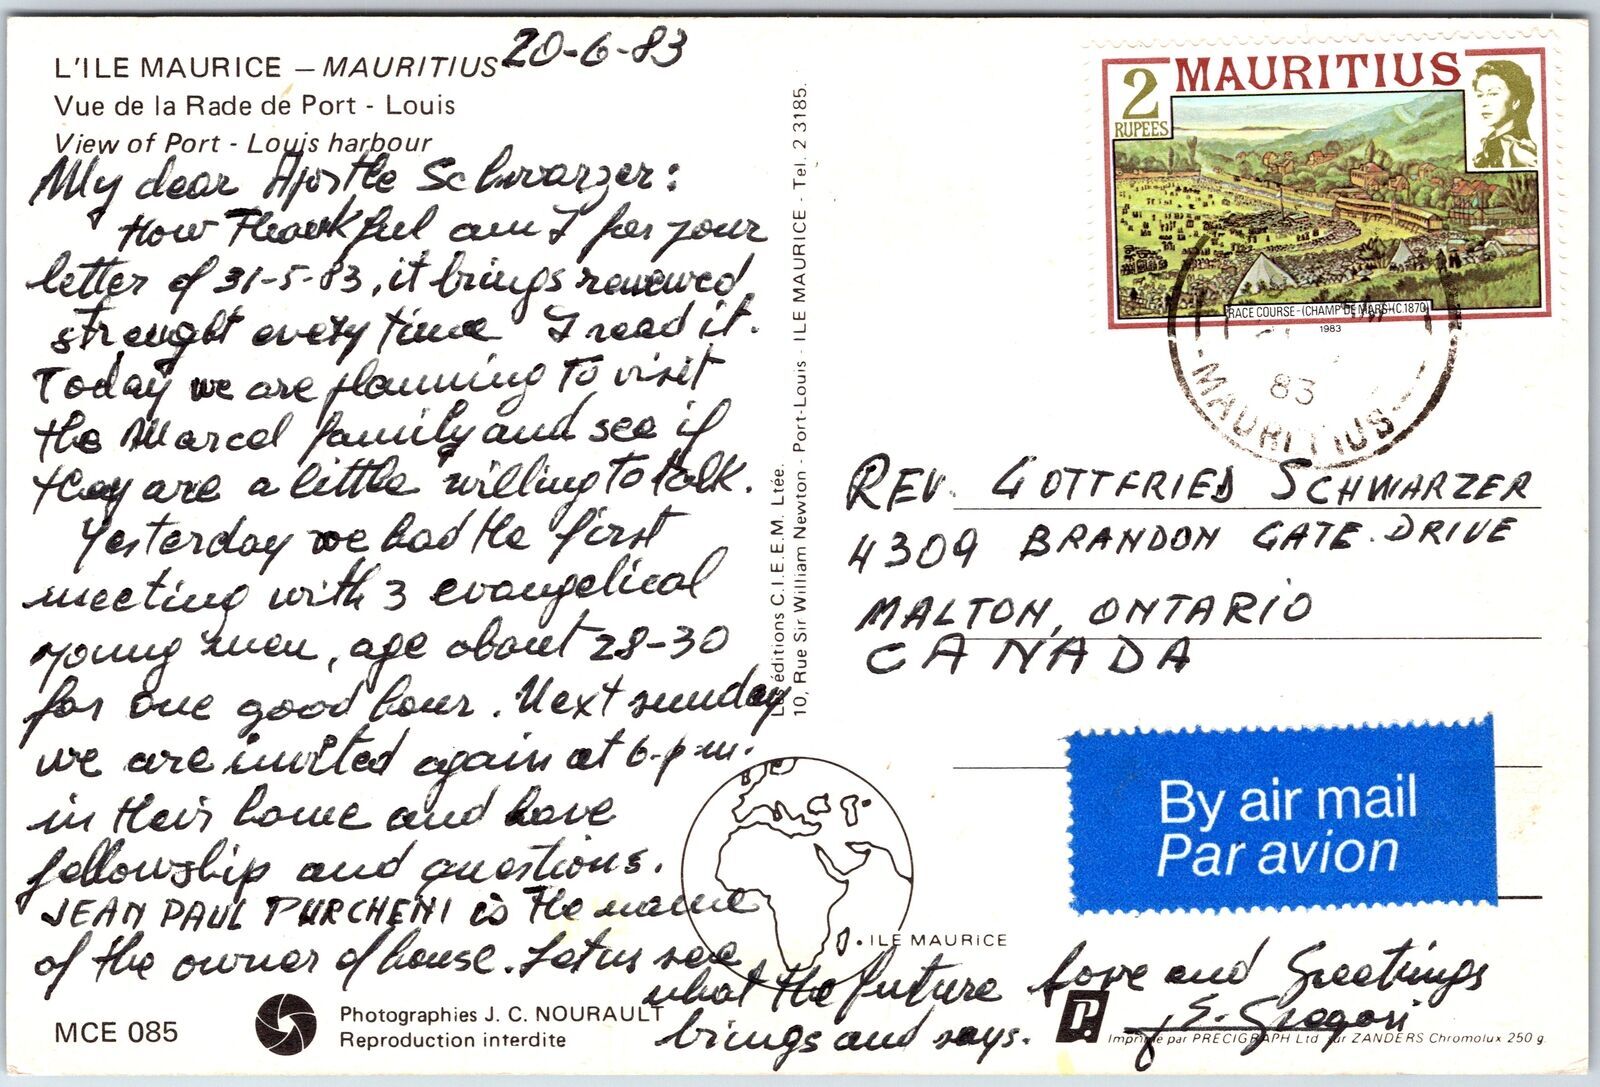 L'ILE MAURICE – MAURITIUS
Vue de la Rade de Port - Louis
View of Port - Louis harbour
20-6-83
My dear Apostle Schwarzer:
How Thankful am I for your
letter of 31-5-83, it brings renewed
strenght every time I read it.
Today we are planning to visit
the Marcel family and see if
they are a little willing to talk.
Yesterday we had the first
meeting with 3 evangelical
young men, age about 28-30
for one good hour. Next sunday
we are invited again at 6-p-m.
in their home and have
fellowship and questions.
JEAN PAUL PURCHENI is the name
of the owner of house. Let us see
what the future
brings and says.
Love and Greetings
E. Gregori
MCE 085
Photographies J. C. NOURAULT
Reproduction interdite
Les éditions C.I.E.E.M. Ltée.
10, Rue Sir William Newton - Port-Louis - ILE MAURICE - Tel. 2 3185.
2
RUPEES
MAURITIUS
RACE COURSE - (CHAMP DE MARS) (C.1870)
1983
83
MAURITIUS
REV. GOTTFRIED SCHWARZER
4309 BRANDON GATE. DRIVE
MALTON, ONTARIO
CANADA
By air mail
Par avion
ILE MAURICE
Imprimé par PRECIGRAPH Ltd sur ZANDERS Chromolux 250 g.